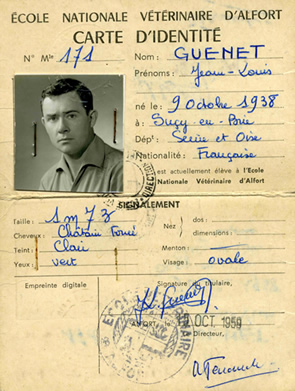 ÉCOLE NATIONALE VÉTÉRINAIRE D'ALFORT
CARTE D'IDENTITÉ
N° Mle 171
Nom: GUENET
Prénoms: Jean-Louis
né le: 9 Octobre 1938
à Sucy-en-Brie
Dépt: Seine et Oise
Nationalité: Française
est actuellement élève à l'Ecole
Nationale Vétérinaire d'Alfort
SIGNALEMENT
Taille: 1m73
Cheveux: Châtain Foncé
Teint: Clair
Yeux: vert
Nez
dos:
dimensions:
Menton
Visage: ovale
Empreinte digitale
Signature du titulaire,
OCT. 1959
Directeur,